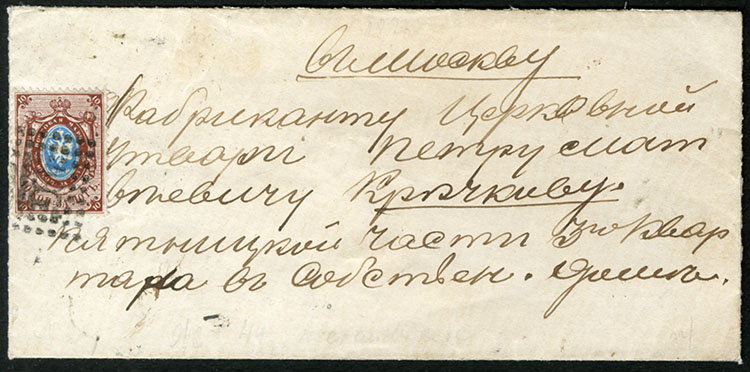 въ Москву
Фабриканту Церковной
утвари Петру Мат
вѣевичу Крючкову.
Пятницкой части 3го квар
тала въ собствен. домѣ.